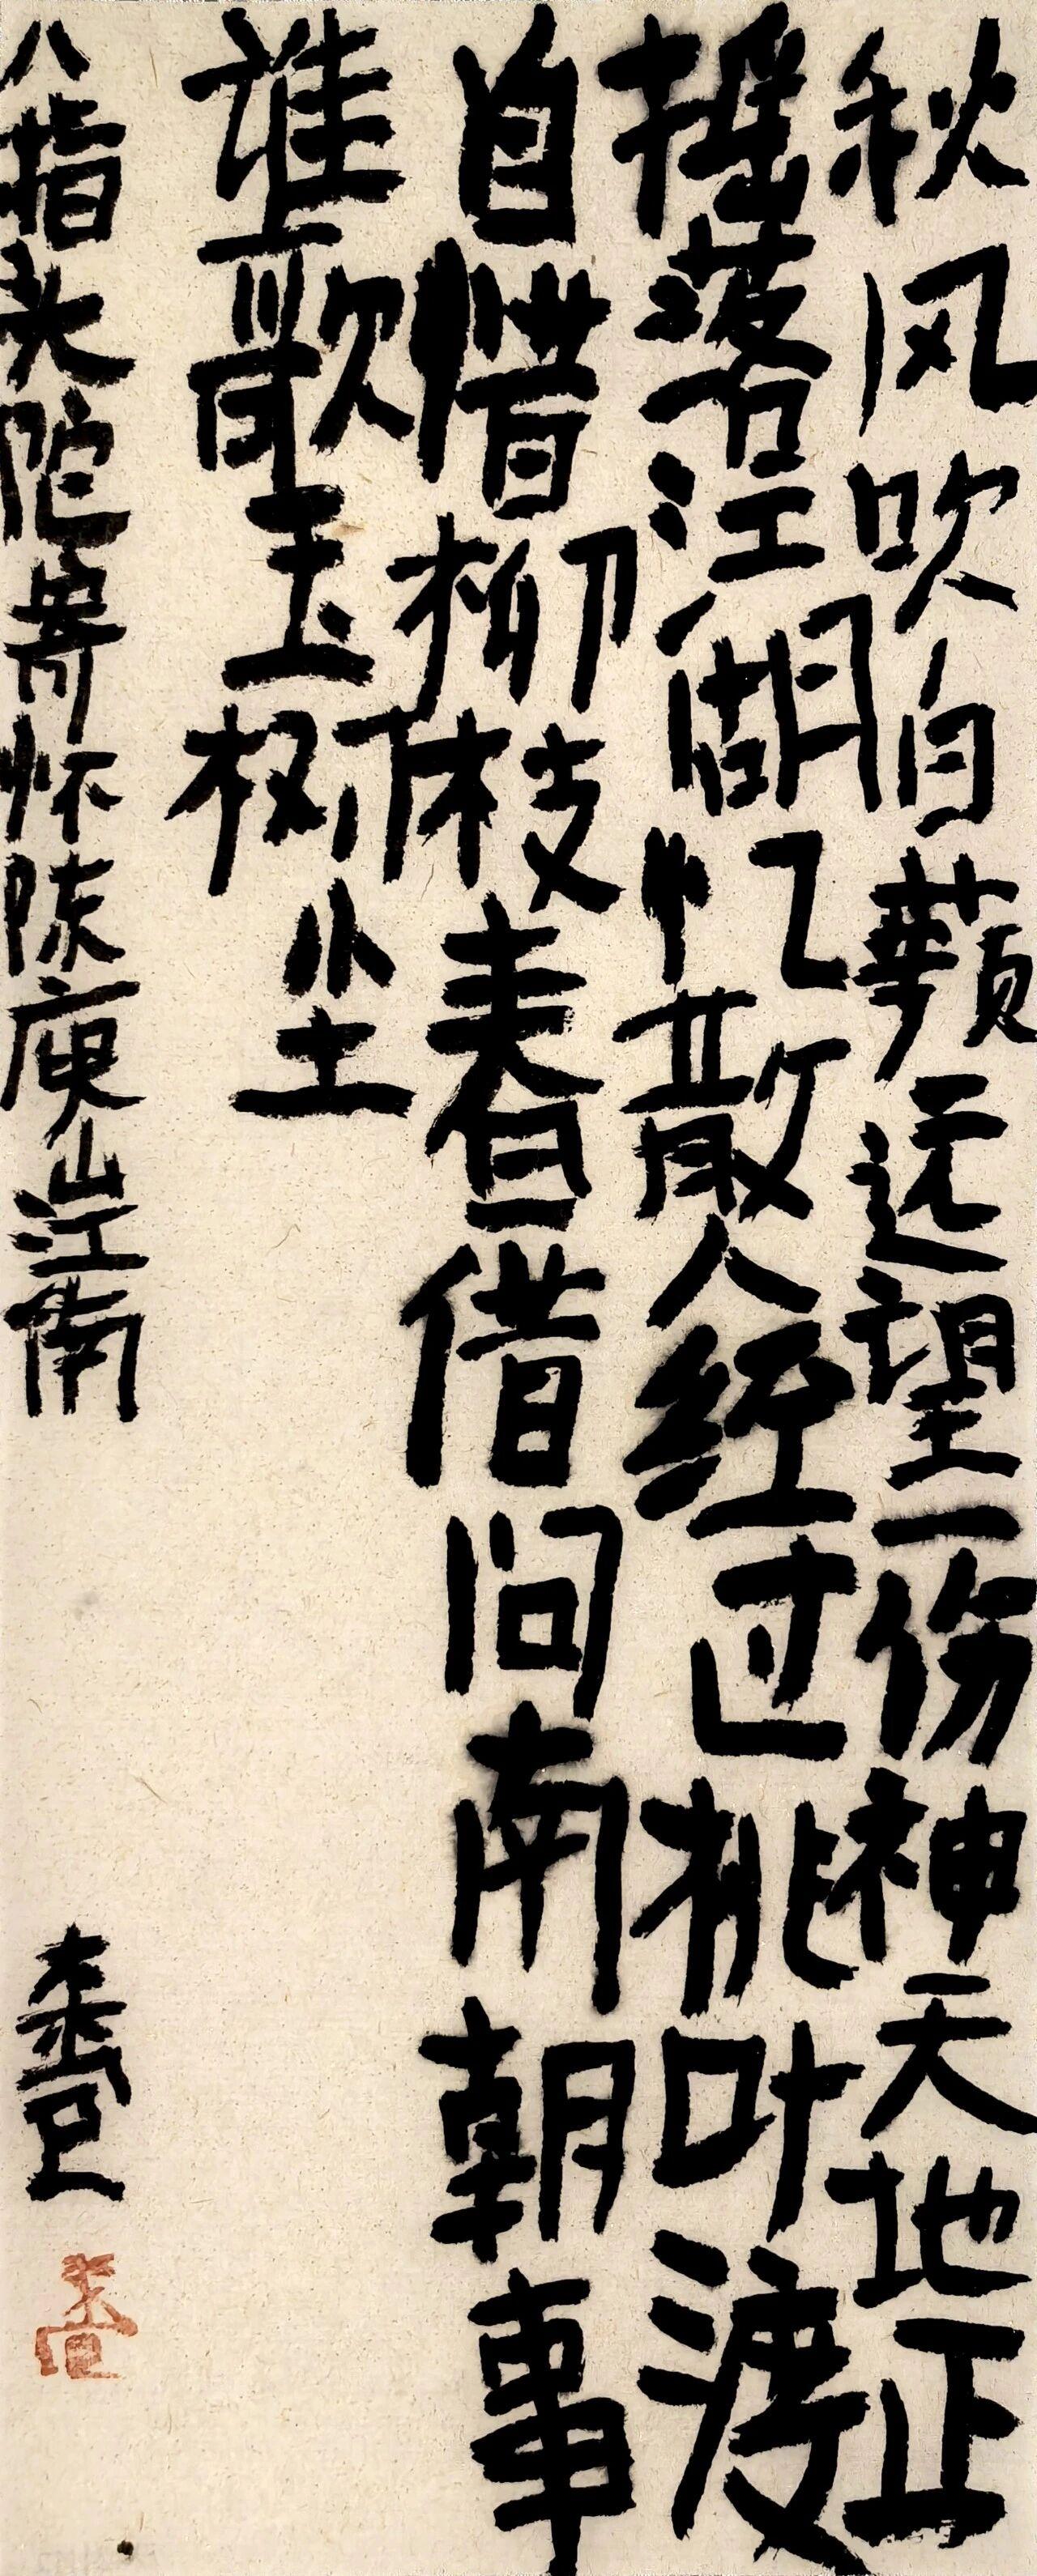 秋风吹白蘋远望一伤神天地正
摇落江湖忆散人经过桃叶渡
自惜柳枝春借问南朝事
谁歌玉树尘
八指头陀寄怀陈庾山江南